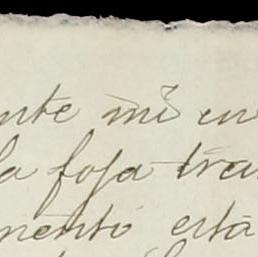 nte mi en
la foja tra
mento esta